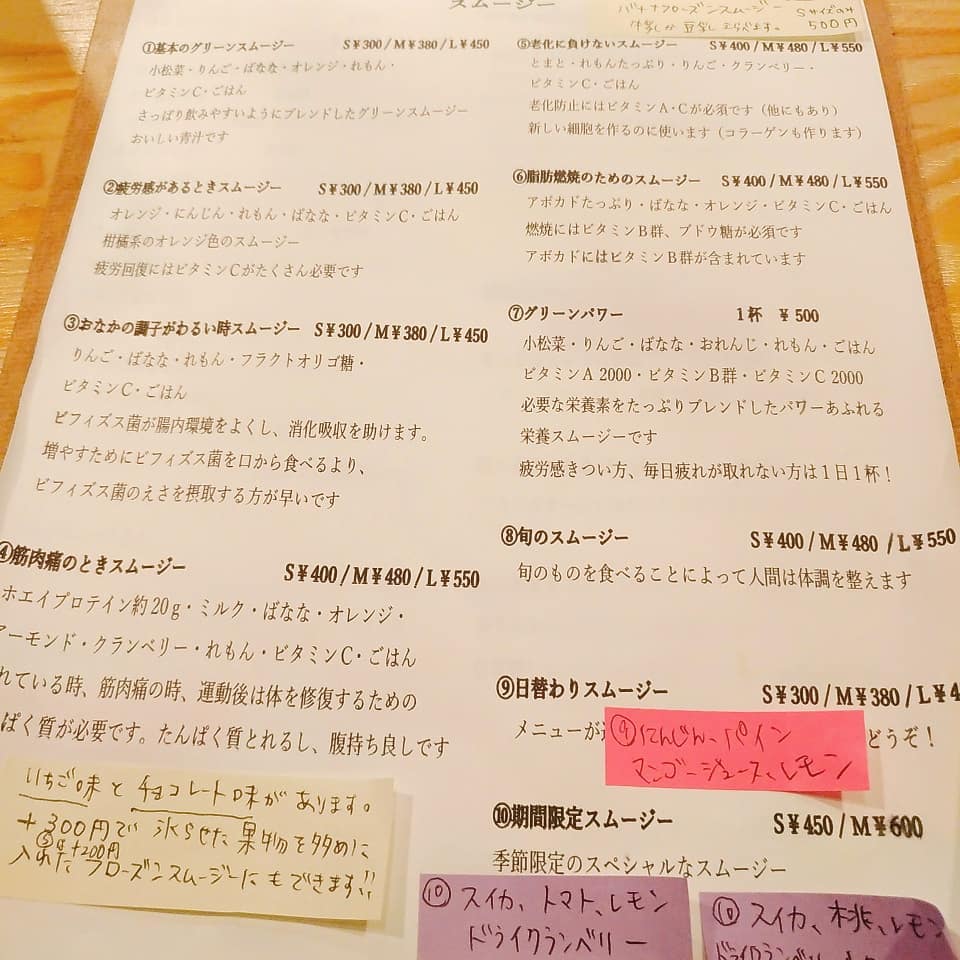 スムージー
バナナフローズンスムージー Sサイズのみ
牛乳か豆乳えらべます。 500円
①基本のグリーンスムージー S¥300/M¥380/L¥450
小松菜・りんご・ばなな・オレンジ・れもん・
ビタミンC・ごはん
さっぱり飲みやすいようにブレンドしたグリーンスムージー
おいしい青汁です
②疲労感があるときスムージー S¥300/M¥380/L¥450
オレンジ・にんじん・れもん・ばなな・ビタミンC・ごはん
柑橘系のオレンジ色のスムージー
疲労回復にはビタミンCがたくさん必要です
③おなかの調子がわるい時スムージー S¥300/M¥380/L¥450
りんご・ばなな・れもん・フラクトオリゴ糖・
ビタミンC・ごはん
ビフィズス菌が腸内環境をよくし、消化吸収を助けます。
増やすためにビフィズス菌を口から食べるより、
ビフィズス菌のえさを摂取する方が早いです
④筋肉痛のときスムージー S¥400/M¥480/L¥550
ホエイプロテイン約20g・ミルク・ばなな・オレンジ・
アーモンド・クランベリー・れもん・ビタミンC・ごはん
れている時、筋肉痛の時、運動後は体を修復するための
ぱく質が必要です。たんぱく質とれるし、腹持ち良しです
いちご味とチョコレート味があります。
+300円で氷らせた果物を多めに
⑤は+200円
入れたフローズンスムージーにもできます!!
⑤老化に負けないスムージー S¥400/M¥480/L¥550
とまと・れもんたっぷり・りんご・クランベリー・
ビタミンC・ごはん
老化防止にはビタミンA・Cが必須です（他にもあり）
新しい細胞を作るのに使います（コラーゲンも作ります）
⑥脂肪燃焼のためのスムージー S¥400/M¥480/L¥550
アボカドたっぷり・ばなな・オレンジ・ビタミンC・ごはん
燃焼にはビタミンB群、ブドウ糖が必須です
アボカドにはビタミンB群が含まれています
⑦グリーンパワー 1杯 ¥500
小松菜・りんご・ばなな・おれんじ・れもん・ごはん
ビタミンA 2000・ビタミンB群・ビタミンC 2000
必要な栄養素をたっぷりブレンドしたパワーあふれる
栄養スムージーです
疲労感きつい方、毎日疲れが取れない方は1日1杯！
⑧旬のスムージー S¥400/M¥480/L¥550
旬のものを食べることによって人間は体調を整えます
⑨日替わりスムージー S¥300/M¥380/L¥4
メニューが どうぞ！
⑨にんじん、パイン
マンゴージュース、レモン
⑩期間限定スムージー S¥450/M¥600
季節限定のスペシャルなスムージー
⑩スイカ、トマト、レモン
ドライクランベリー
⑩スイカ、桃、レモン
ドライクランベリー